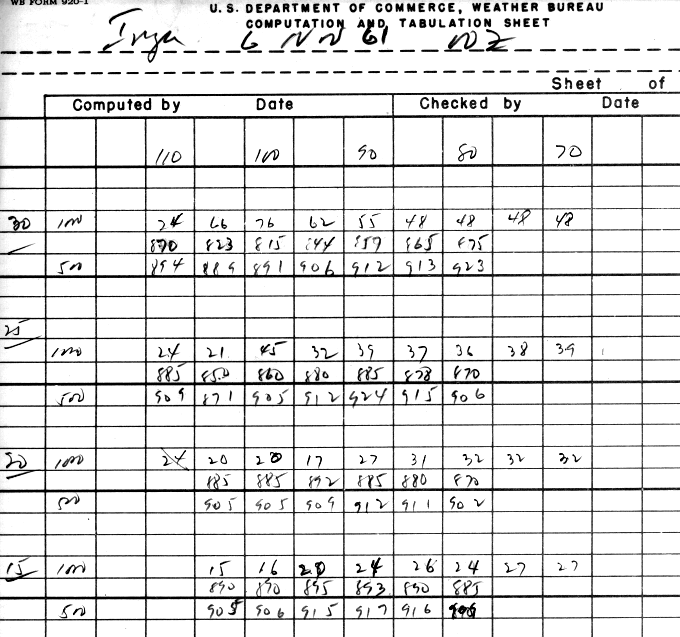 WB FORM 920-1
U. S. DEPARTMENT OF COMMERCE, WEATHER BUREAU
COMPUTATION AND TABULATION SHEET
Inga 6 Nov 61 00Z
Sheet of
Computed by Date Checked by Date
110 100 90 80 70
30 1000 24 66 76 62 55 48 48 48 48
870 823 815 844 857 865 875
500 894 889 891 906 912 913 923
25
1000 24 21 45 32 39 37 36 38 39
885 850 860 880 885 878 870
500 909 871 905 912 924 915 906
20 1000 24 20 20 17 27 31 32 32 32
885 885 892 885 880 870
500 905 905 909 912 911 902
15 1000 15 16 20 24 26 24 27 27
890 890 895 893 890 885
500 905 906 915 917 916